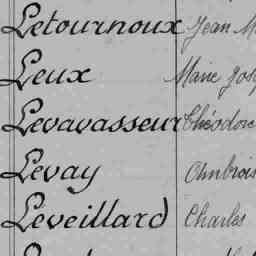 Letournoux Jean M
Leux Marie Jos
Levavasseur Théodore
Levay Ambrois
Léveillard Charles